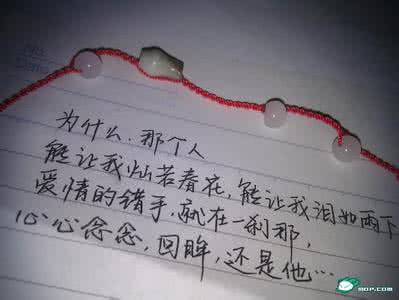 为什么.那个人
能让我灿若春花,能让我泪如雨下
爱情的错手,就在一刹那,
心心念念,回眸,还是他…
MOP.COM